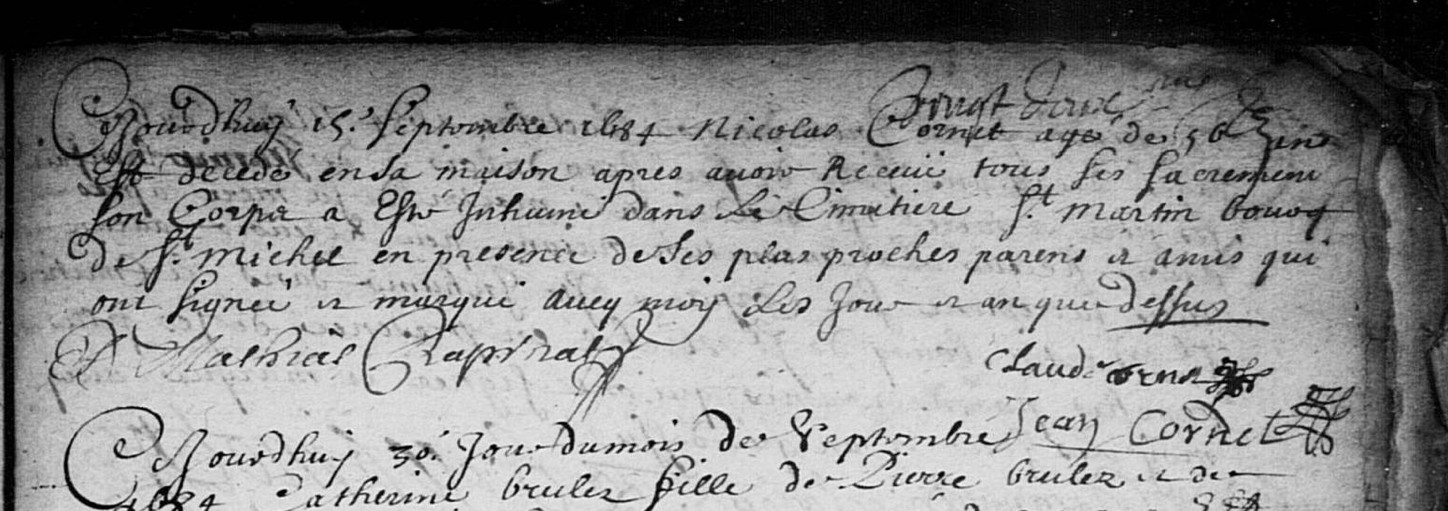 Cejourdhuy 15.e septembre 1684 Nicolas Cornet agé de 56 ans
Est decedé en sa maison apres avoir Receüe tous ses sacremens
son Corps a Esté Inhumé dans Le Cimetiere St. Martin bourg
De St. Michel en presence de Ses plus proches parens et amis qui
ont signée et marqué avecq moy Les Jour et an que dessus
Mathias Claude Cornet
Jean Cornet
Cejourdhuy 30.e Jour du mois de Septembre
1684 Catherine brulez fille de Pierre brulez et de